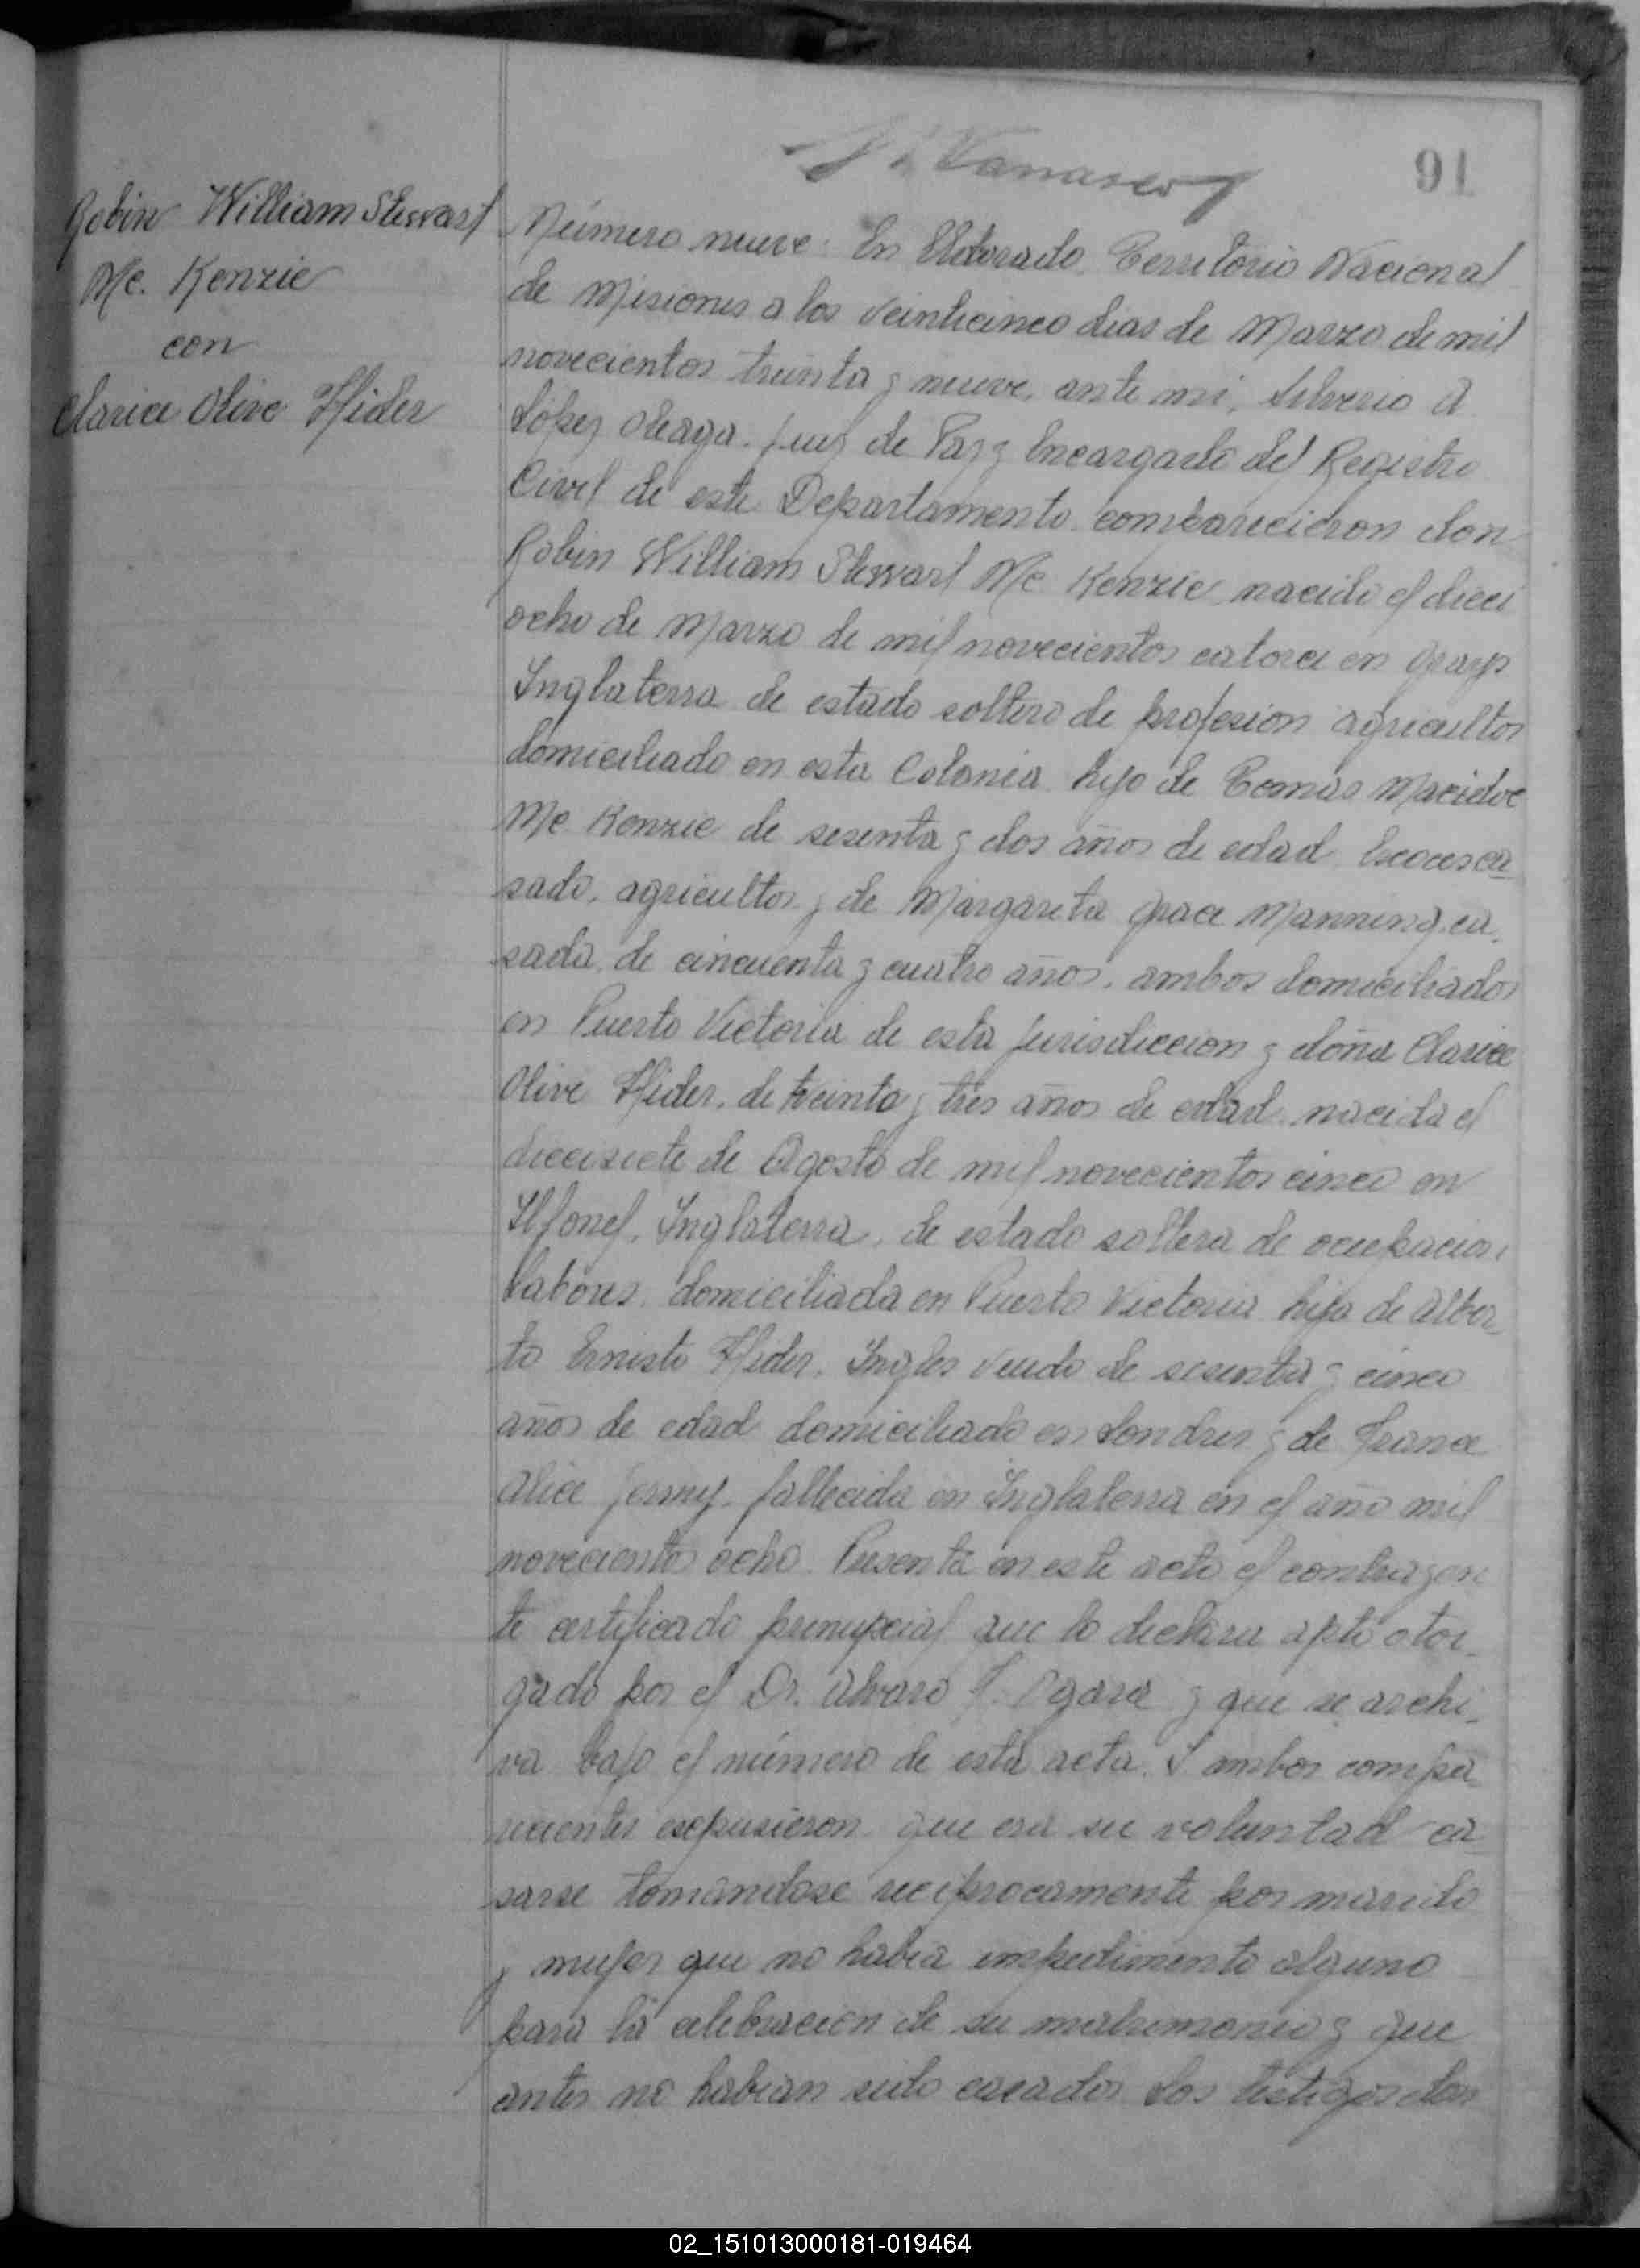 91
Robin William Stewart
Mc. Kenzie
con
Clarice Olive Hider
Número nueve: En Eldorado Territorio Nacional
de Misiones a los veinticinco dias de Marzo de mil
novecientos treinta y nueve, ante mi, Silverio A
López Oleaga. Juez de Paz y Encargado del Registro
Civil de este Departamento comparecieron don
Robin William Stewart Mc Kenzie nacido el dieci
ocho de Marzo de mil novecientos catorce en Grays
Inglaterra de estado soltero de profesion agricultor
domiciliado en esta Colonia hijo de Tomás
Mc Kenzie de sesenta y dos años de edad Escoces ca
sado, agricultor y de Margarita Grace Manning, ca
sada, de cincuenta y cuatro años, ambos domiciliados
en Puerto Victoria de esta jurisdiccion y doña Clarice
Olive Hider, de treinta y tres años de edad nacida el
diecisiete de Agosto de mil novecientos cinco en
Inglaterra, de estado soltera de ocupacion
labores, domiciliada en Puerto Victoria hija de Alber_
to Ernesto Hider, Ingles viudo de sesenta y cinco
años de edad domiciliado en Londres y de
Alice fallecida en Inglaterra en el año mil
novecientos ocho. Presenta en este acto el contrayen
te certificado prenupcial que lo declara apto otor_
gado por el Dr. Alvaro y que se archi_
va bajo el número de esta acta. Y ambos compa_
recientes expusieron que era su voluntad ca_
sarse tomandose reciprocamente por marido
y mujer que no habia impedimento alguno
para la celebracion de su matrimonio y que
antes no habian sido casados Los testigos don
02_151013000181-019464